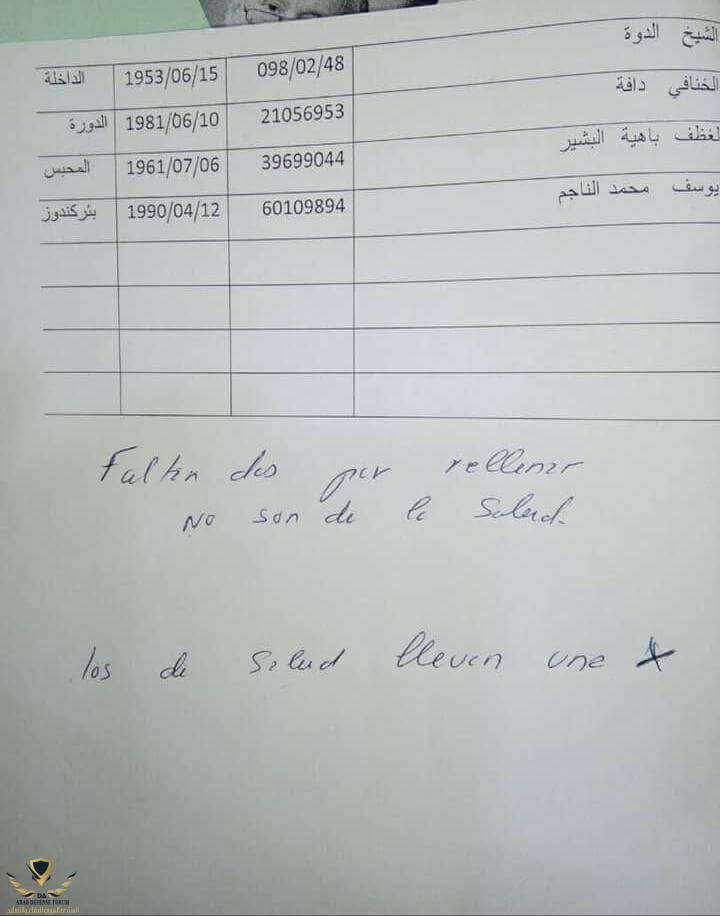 الشيخ الدوة 098/02/48 1953/06/15 الداخلة
الخنافي دافة 21056953 1981/06/10 الدورة
لغظف باهية البشير 39699044 1961/07/06 المحبس
يوسف محمد الناجم 60109894 1990/04/12 بئركندوز
Faltan dos por rellenar
No son de la Salud.
los de Salud llevan una
ARAB DEFENSE FORUM